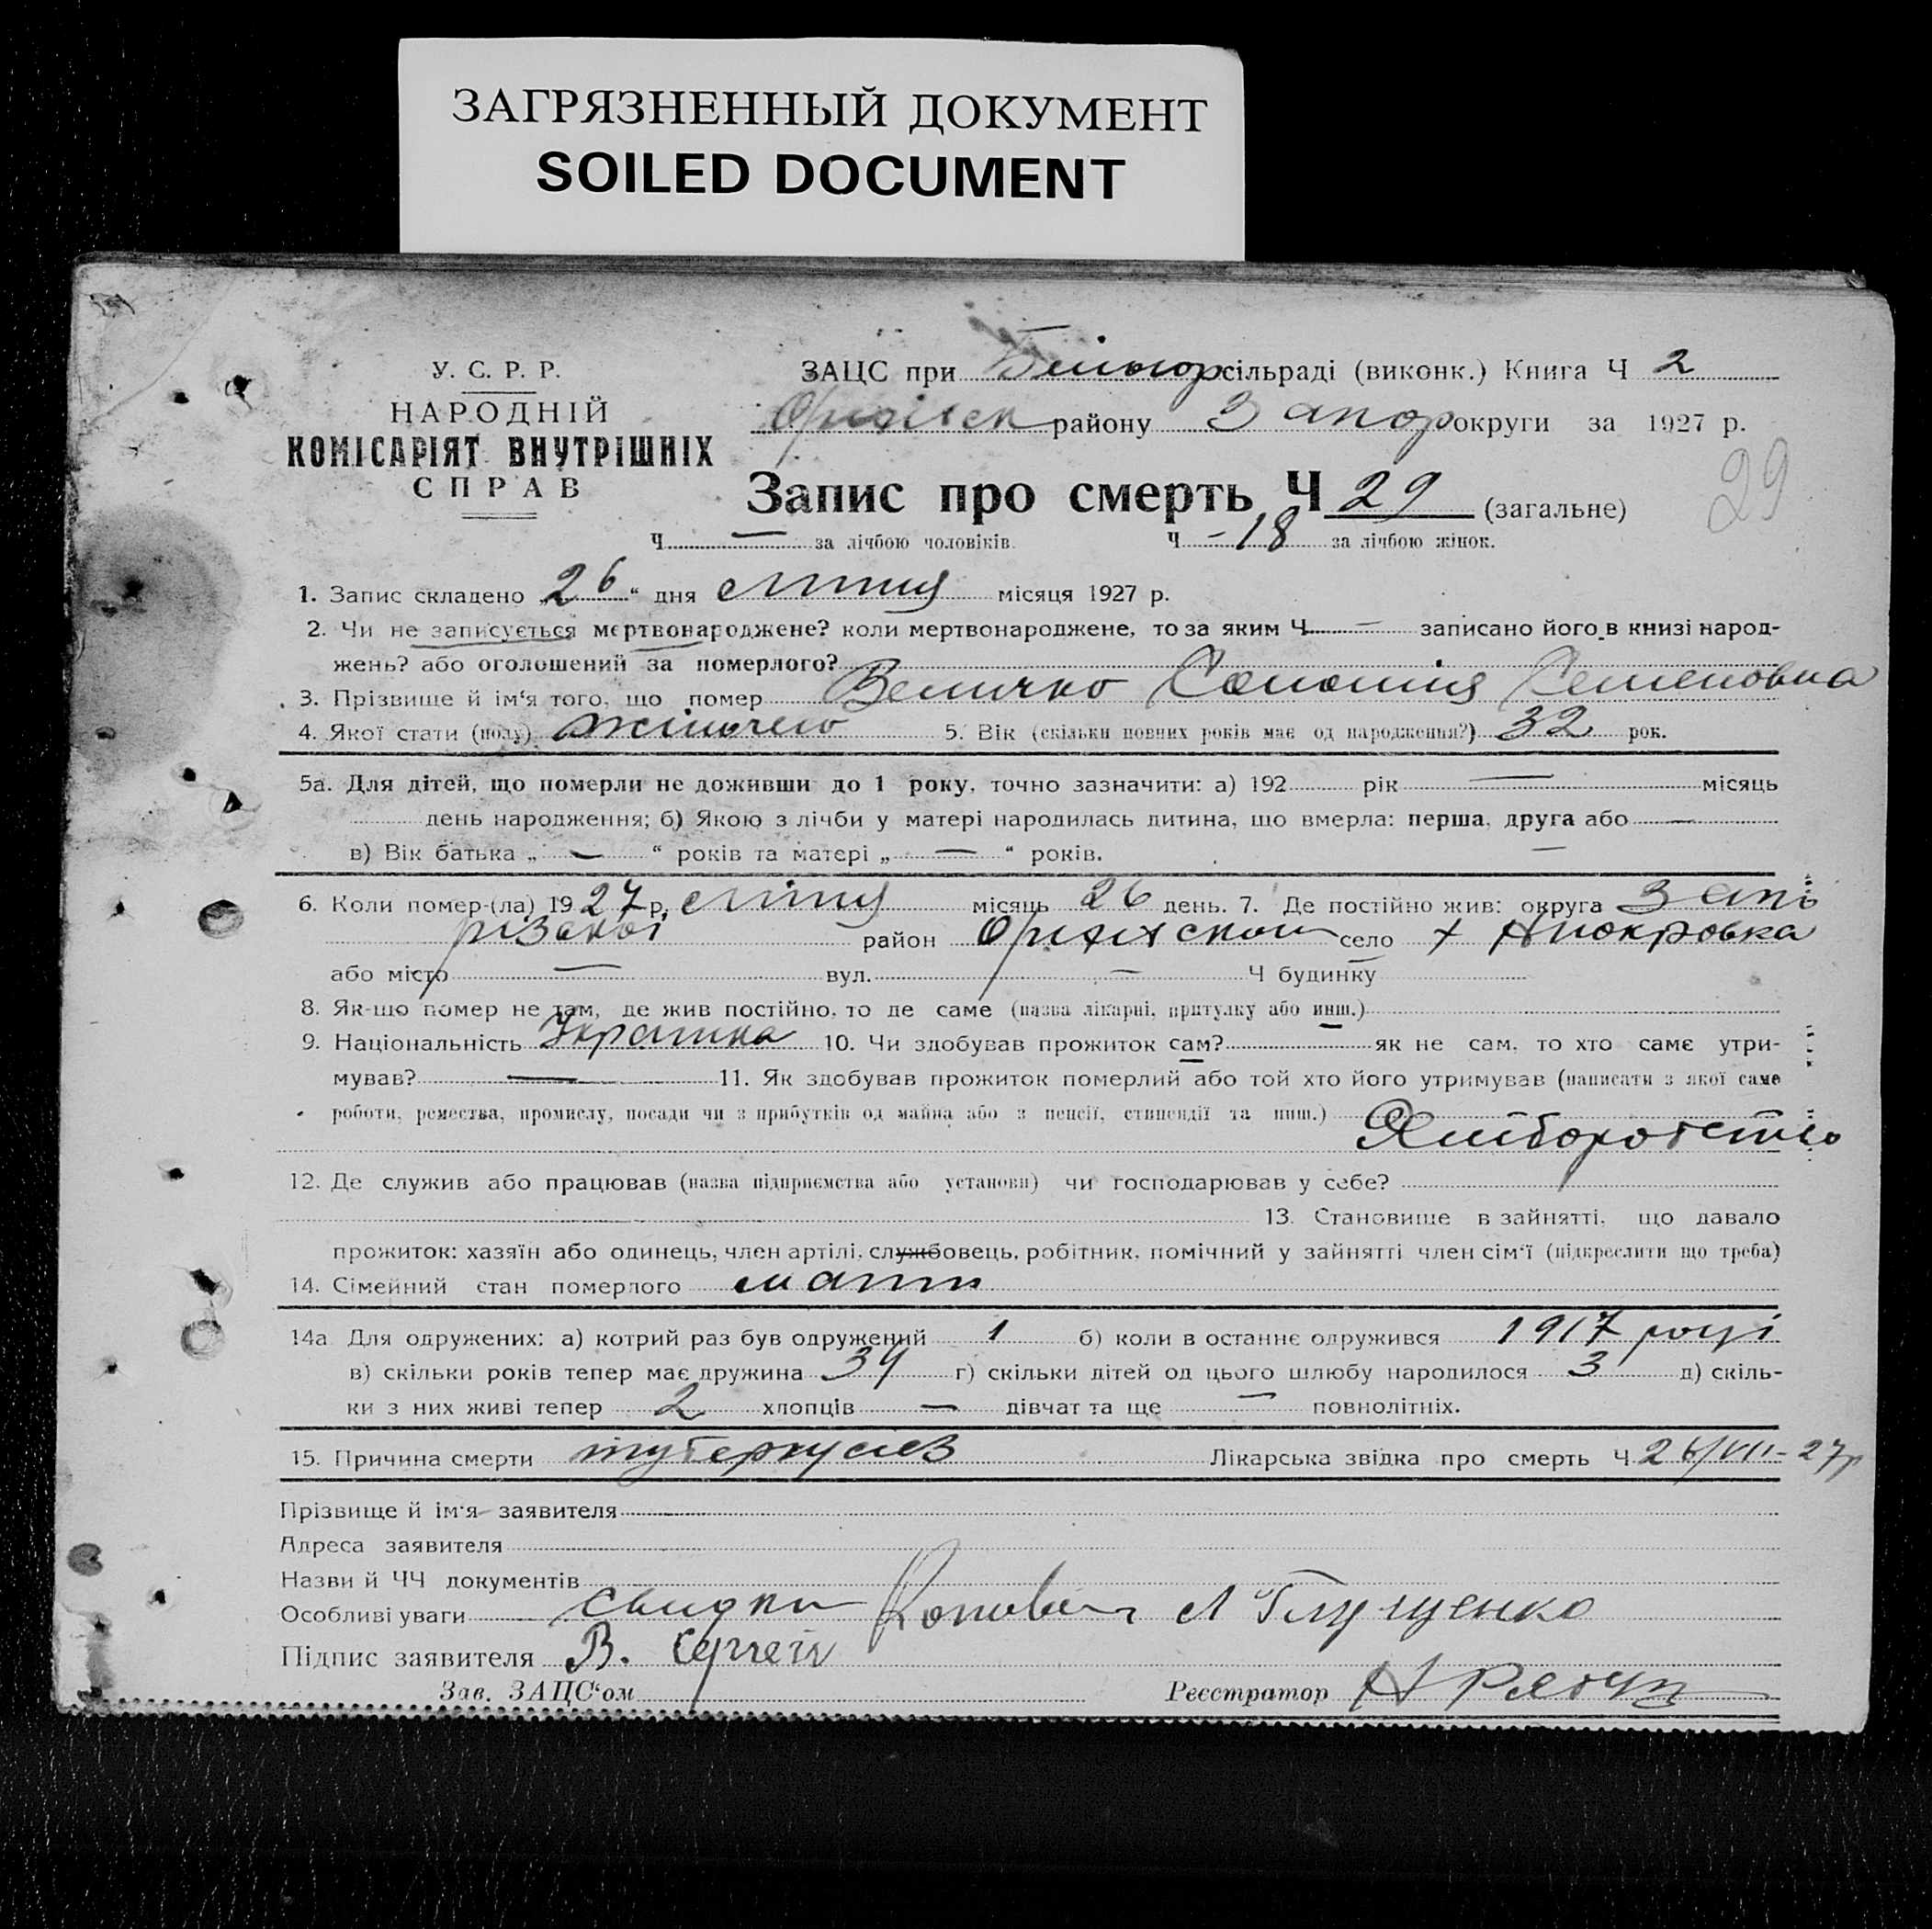 ЗАГРЯЗНЕННЫЙ ДОКУМЕНТ
SOILED DOCUMENT
У. С. Р. Р.
НАРОДНІЙ
КОМІСАРІЯТ ВНУТРІШНІХ
СПРАВ
ЗАЦС при сільраді (виконк.) Книга Ч 2
району Запор округи за 1927 р.
Запис про смерть Ч 29 (загальне)
29
Ч — за лічбою чоловіків. Ч -18 за лічбою жінок.
1. Запис складено „26“ дня липня місяця 1927 р.
2. Чи не записується мертвонароджене? коли мертвонароджене, то за яким Ч — записано його в книзі народ-
жень? або оголошений за померлого?
3. Прізвище й ім‘я того, що помер Величко Соломія Семеновна
4. Якої стати (полу) жіночею 5. Вік (скільки повних років має од народження?) 32 рок.
5а. Для дітей, що померли не доживши до 1 року, точно зазначити: а) 192 рік — місяць
день народження; б) Якою з лічби у матері народилась дитина, що вмерла: перша, друга або —
в) Вік батька „ — “ років та матері „ — “ років.
6. Коли помер-(ла) 1927 р. липня місяць 26 день. 7. Де постійно жив: округа Запо
різької район село х
або місто — вул. — Ч будинку
8. Як-що помер не там, де жив постійно, то де саме (назва лікарні, притулку або инш.)
9. Національність Українка 10. Чи здобував прожиток сам? як не сам, то хто саме утри-
мував? — 11. Як здобував прожиток померлий або той хто його утримував (написати з якої саме
роботи, ремества, промислу, посади чи з прибутків од майна або з пенсії, стипендії та инш.)
Хліборобство
12. Де служив або працював (назва підприємства або установи) чи господарював у себе?
13. Становище в зайнятті, що давало
прожиток: хазяїн або одинець, член артілі, службовець, робітник, помічний у зайнятті член сім‘ї (підкреслити що треба)
14. Сімейний стан померлого мати
14а Для одружених: а) котрий раз був одружений 1 б) коли в останнє одружився 1917 році
в) скільки років тепер має дружина 34 г) скільки дітей од цього шлюбу народилося 3 д) скіль-
ки з них живі тепер 2 хлопців — дівчат та ще — повнолітніх.
15. Причина смерти туберкульоз Лікарська звідка про смерть Ч 26/VII-27р
Прізвище й ім‘я заявителя
Адреса заявителя
Назви й ЧЧ документів
Особливі уваги Свидки Л Глущенко
Підпис заявителя В. Сергеев
Зав. ЗАЦС‘ом Реєстратор